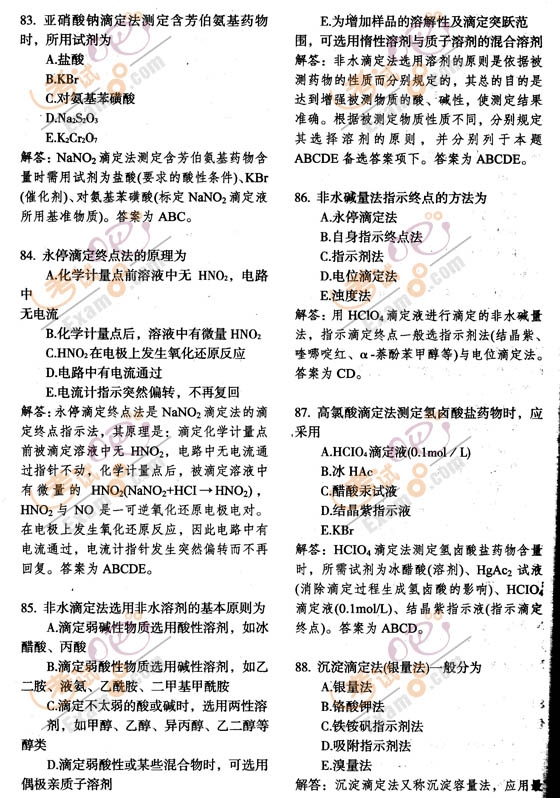 83. 亚硝酸钠滴定法测定含芳伯氨基药物
时，所用试剂为
A.盐酸
B.KBr
C.对氨基苯磺酸
D.Na₂S₂O₃
E.K₂Cr₂O₇
解答：NaNO₂滴定法测定含芳伯氨基药物含
量时需用试剂为盐酸(要求的酸性条件)、KBr
(催化剂)、对氨基苯磺酸(标定NaNO₂滴定液
所用基准物质)。答案为 ABC。
84. 永停滴定终点法的原理为
A.化学计量点前溶液中无 HNO₂，电路
中
无电流
B.化学计量点后，溶液中有微量HNO₂
C.HNO₂在电极上发生氧化还原反应
D.电路中有电流通过
E.电流计指示突然偏转，不再复回
解答：永停滴定终点法是 NaNO₂滴定法的滴
定终点指示法，其原理是：滴定化学计量点
前被滴定溶液中无 HNO₂，电路中无电流通
过指针不动，化学计量点后，被滴定溶液中
有微量的 HNO₂(NaNO₂+HCl→HNO₂)，
HNO₂与 NO 是一可逆氧化还原电极电对。
在电极上发生氧化还原反应，因此电路中有
电流通过，电流计指针发生突然偏转而不再
回复。答案为 ABCDE。
85. 非水滴定法选用非水溶剂的基本原则为
A.滴定弱碱性物质选用酸性溶剂，如冰
醋酸、丙酸
B.滴定弱酸性物质选用碱性溶剂，如乙
二胺、液氨、乙酰胺、二甲基甲酰胺
C.滴定不太弱的酸或碱时，选用两性溶
剂，如甲醇、乙醇、异丙醇、乙二醇等
醇类
D.滴定弱酸性或某些混合物时，可选用
偶极亲质子溶剂
E.为增加样品的溶解性及滴定突跃范
围，可选用惰性溶剂与质子溶剂的混合溶剂
解答：非水滴定法选用溶剂的原则是依据被
测药物的性质而分别规定的，其总的目的是
达到增强被测物质的酸、碱性，使测定结果
准确。根据被测定物质性质不同，分别规定
其选择溶剂的原则，并分别列于本题
ABCDE 备选答案项下。答案为 ABCDE。
86. 非水碱量法指示终点的方法为
A.永停滴定法
B.自身指示终点法
C.指示剂法
D.电位滴定法
E.浊度法
解答：用 HClO₄滴定液进行滴定的非水碱量
法，指示滴定终点一般选指示剂法(结晶紫、
喹哪啶红、α-萘酚苯甲醇等)与电位滴定法。
答案为 CD。
87. 高氯酸滴定法测定氢卤酸盐药物时，应
采用
A.HClO₄滴定液(0.1mol／L)
B.冰 HAc
C.醋酸汞试液
D.结晶紫指示液
E.KBr
解答：HClO₄滴定法测定氢卤酸盐药物含量
时，所需试剂为冰醋酸(溶剂)、HgAc₂ 试液
(消除滴定过程生成氢卤酸的影响)、HClO₄
滴定液(0.1mol/L)、结晶紫指示液(指示滴定
终点)。答案为 ABCD。
88. 沉淀滴定法(银量法)一般分为
A.银量法
B.铬酸钾法
C.铁铵矾指示剂法
D.吸附指示剂法
E.溴量法
解答：沉淀滴定法又称沉淀容量法，应用最